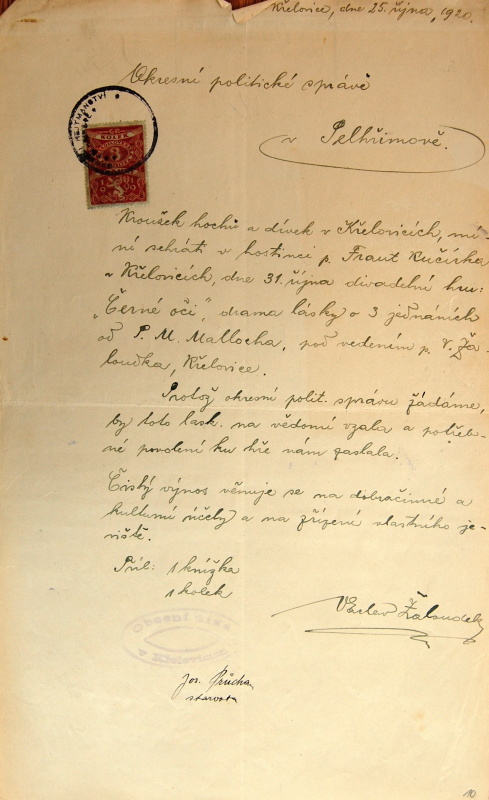 Křelovice, dne 25. října, 1920.
Okresní politické správě
v Pelhřimově.
HEJTMANSTVÍ
KOLEK
3
Kroužek hochů a dívek v Křelovicích, mí-
ní sehráti v hostinci p. Frant Kučírka
v Křelovicích, dne 31. října divadelní hru:
„Černé oči", drama lásky o 3 jednáních
od P. M. Mallocha, pod vedením p. V. Ža-
loudka, Křelovice.
Protož okresní polit. správu žádáme,
by toto lask. na vědomí vzala a potřeb-
né povolení ku hře nám zaslala.
Čistý výnos věnuje se na dobročinné a
kulturní účely a na zřízení vlastního je-
viště.
Příl: 1 knížka
1 kolek
Václav Žaloudek
Obecní úřad
v Křelovicích
Jos. Průcha
starosta
10